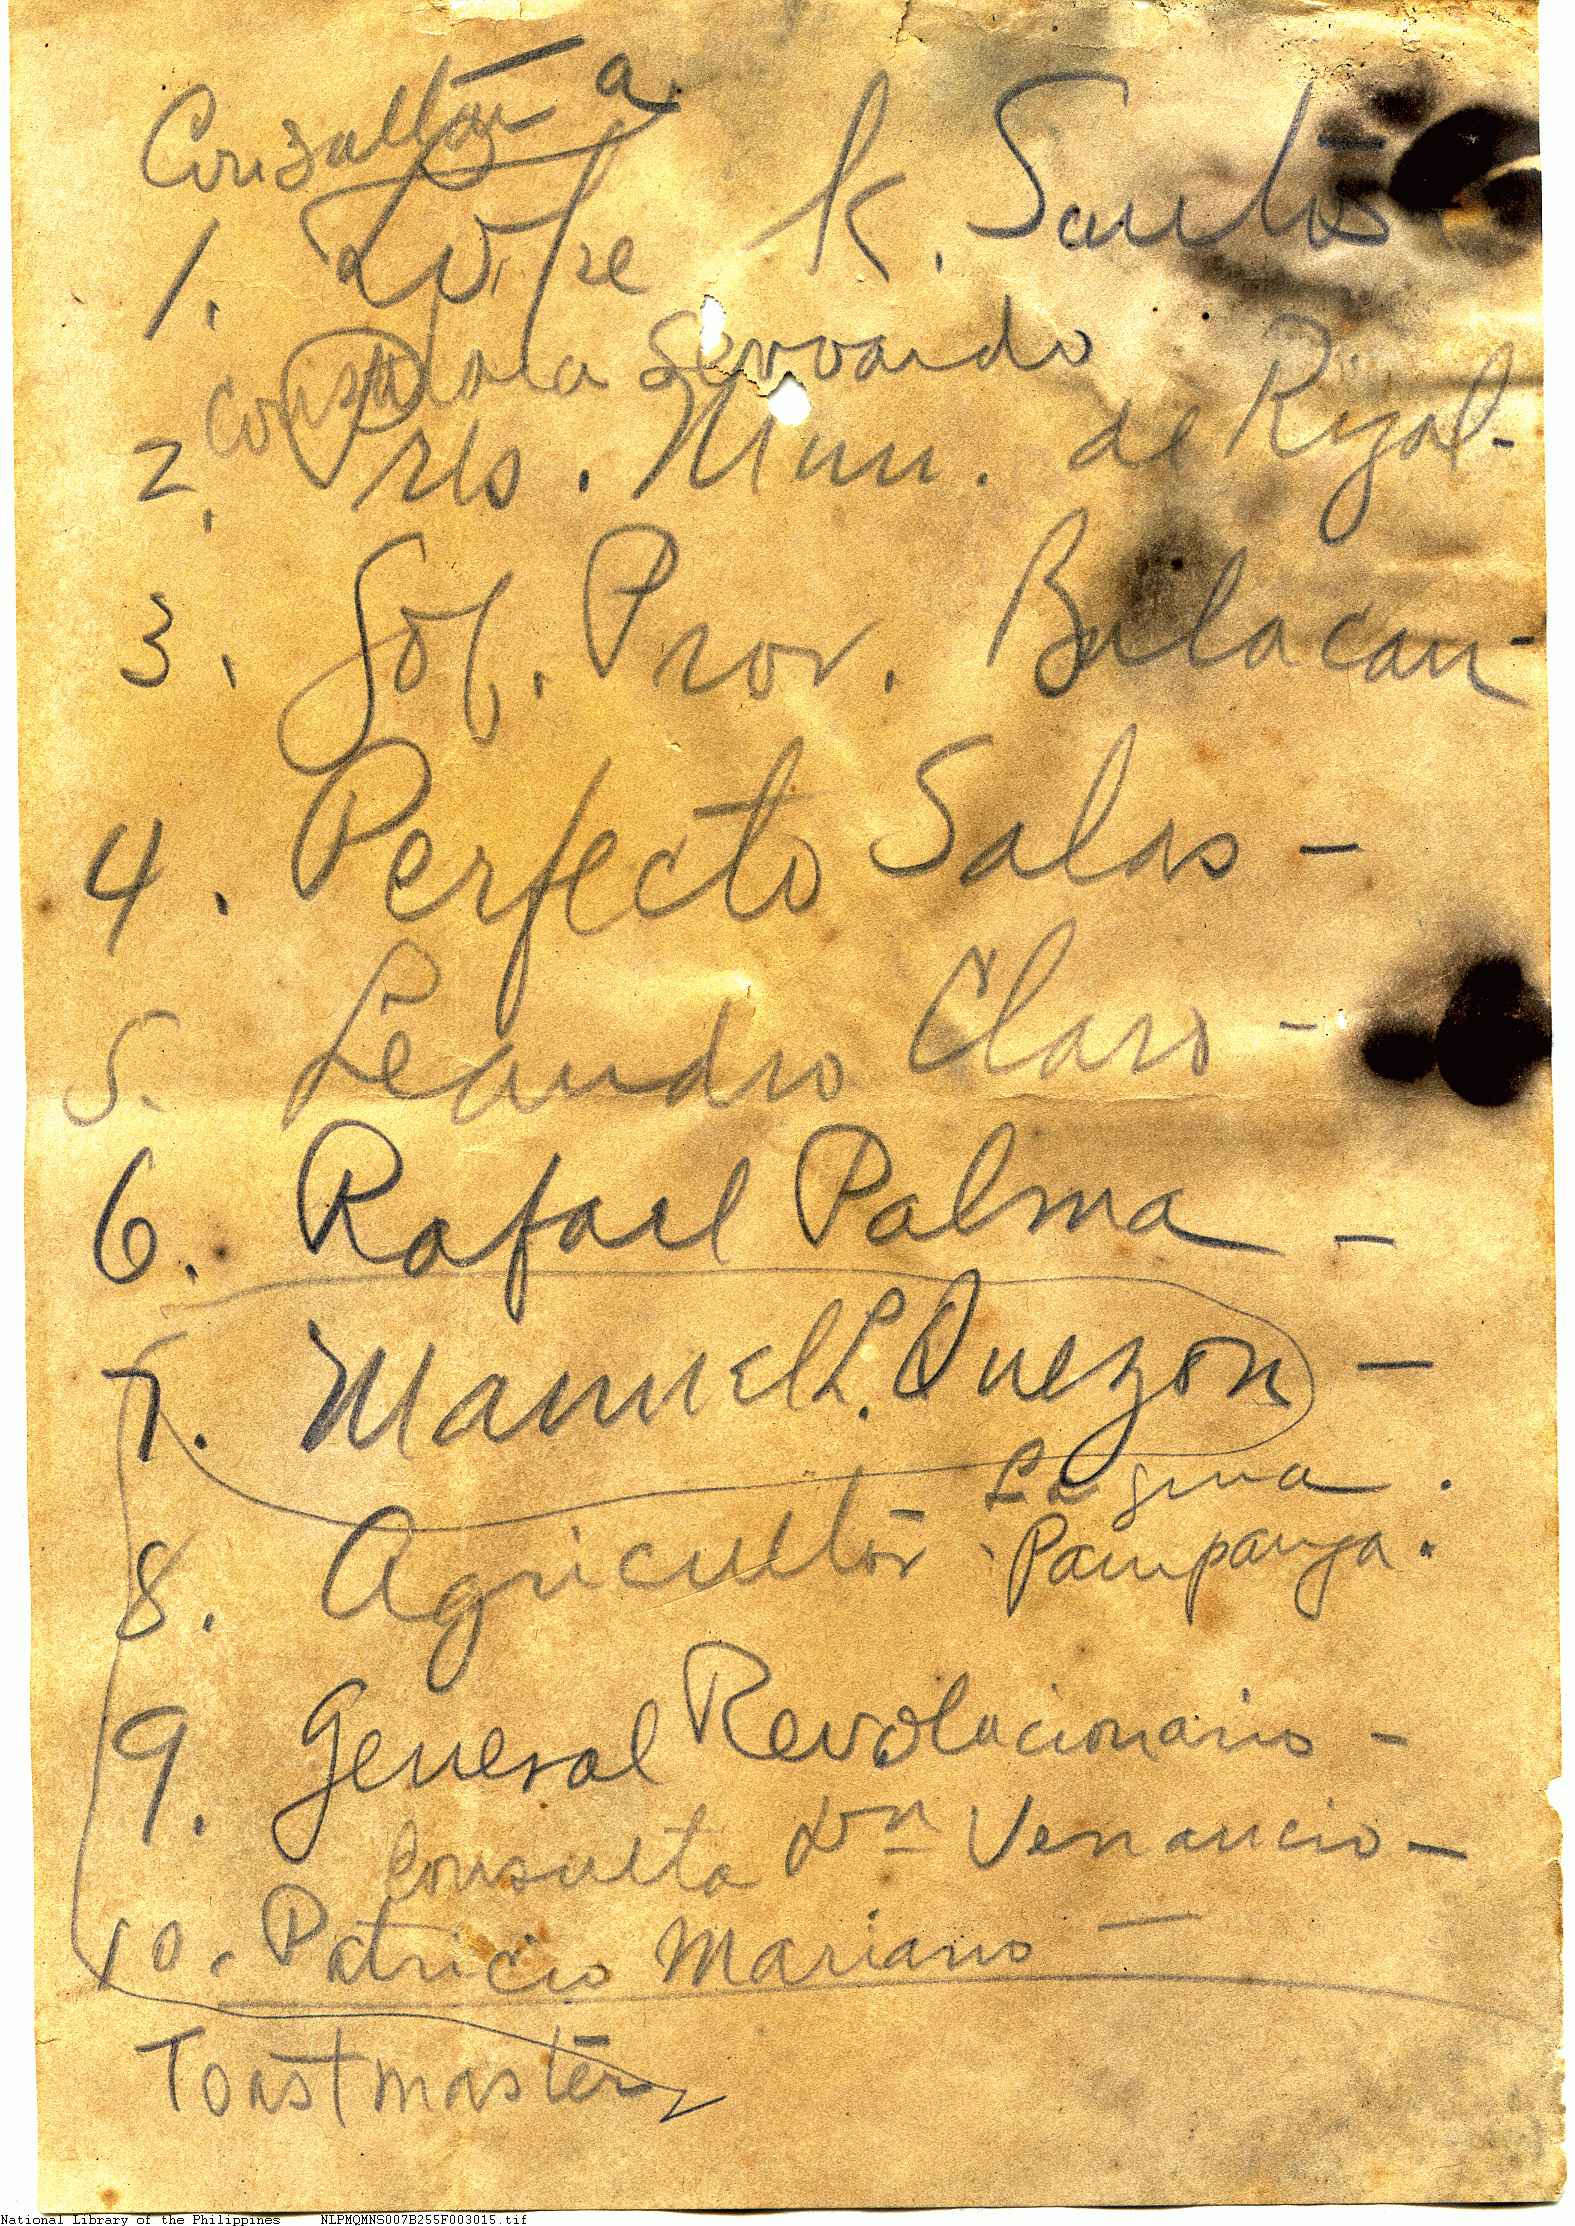 Consultar a
1. Lope K. Santos
Consulta a Servando
2. Pres. Mun. de Rizal -
3. Gob. Prov. Bulacan -
4. Perfecto Salas -
5. Leandro Claro -
6. Rafael Palma -
7. Manuel L. Quezon -
Laguna.
8. Agricultor Pampanga.
9. General Revolucionario -
Consulta Dn Venancio -
10. Patricio Mariano -
Toastmaster
National Library of the Philippines NLPMQMNS007B255F003015.tif